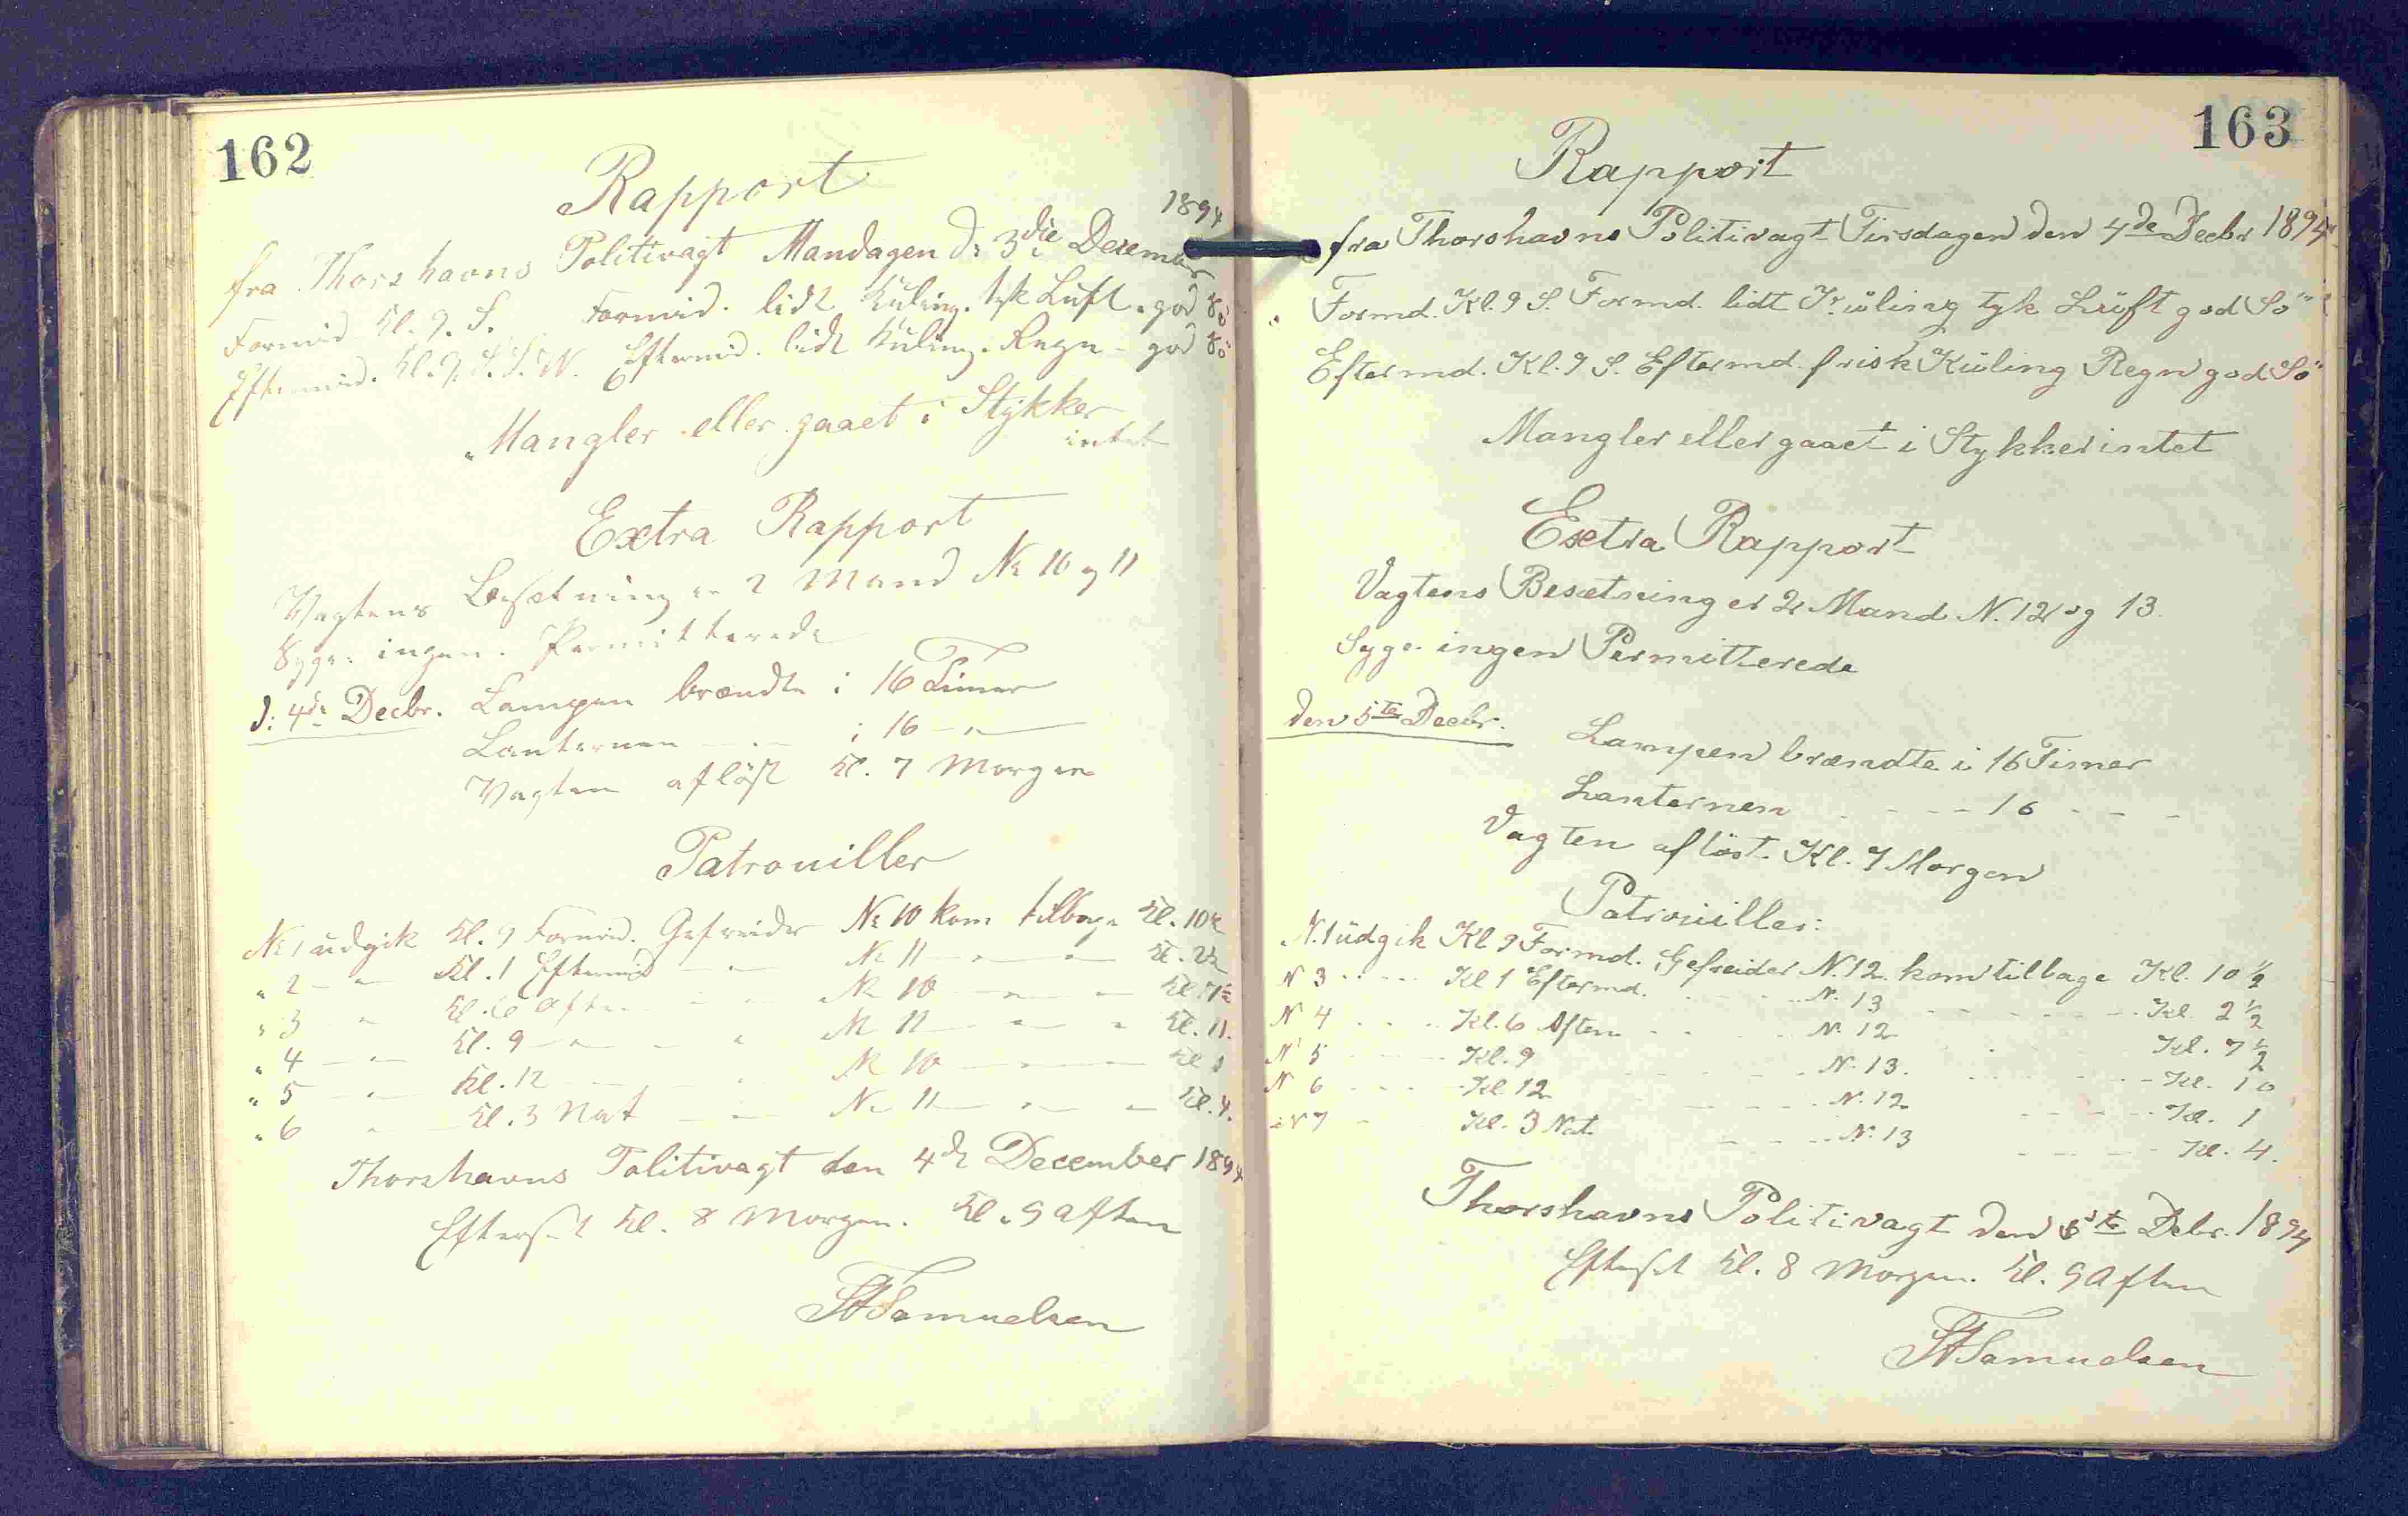 162
Rapport
1894
fra Thorshavns Politivagt Mandagen d: 3die Decembr
Formid. Kl. 9. S. Formid. lidt Kuling. tyk Luft. god Sö
Eftermid. Kl. 9. S.S.W. Eftermid. lidt Kuling. Regn - god Sö
Mangler eller gaaet i Stykker
intet
Extra Rapport
Vagtens Besætning er 2 Mand No 10 og 11
Syge: ingen. Permitterede
d: 4de Decbr. Lampen brændte i 16 Timer
Lanternen — " — i 16 — " —
Vagten aflöst Kl. 7 Morgen
Patrouiller
No 1 udgik Kl. 9 Formid. Gefreider No 10 kom tilbage Kl. 10½
" 2 — " — Kl. 1 Eftermid — " — No 11 — " — " — Kl. 2½
" 3 " Kl. 6 Aften — " — No 10 — " — " — Kl. 7½
" 4 — " — Kl. 9 — " — " No 11 — " — " Kl. 11.
" 5 — " — Kl. 12 — " — No 10 — " — Kl 1
" 6 " — Kl. 3 Nat — " — No 11 — " — " — Kl. 4.
Thorshavns Politivagt den 4de December 1894
Efterset Kl. 8 Morgen. Kl. 9 Aften
Samuelsen
163
Rapport
fra Thorshavns Politivagt Tirsdagen den 4de Decbr 1894
Formd. Kl. 9 S. Formd. lidt Küling tyk Lüft god Sö
Eftermd. Kl. 9 S. Eftermd. frisk Küling Regn god Sö
Mangler eller gaaet i Stykker intet
Extra Rapport
Vagtens Besætning er 2 Mand N. 12 og 13.
Syge ingen Permitterede
den 5te Decbr. Lampen brændte i 16 Timer
Lanternen - - - - 16 - - -
Vagten aflöst. Kl. 7 Morgen
Patrouiller:
N. 1 üdgik Kl 9 Formd. Gefreider N. 12 kom tilbage Kl. 10 ½
N 3 - - - - Kl 1 Eftermd. - - - - N. 13 - - - - Kl. 2 ½
N 4 - - - - Kl. 6 Aften - - - N. 12 - - Kl. 7 ½
N 5 - - - - Kl. 9 - - - - N. 13. - - - - Kl. 10
N 6 - - - - Kl 12 - - - - N. 12 - - - - Kl. 1
N 7 - Kl. 3 Nat. - - - - N. 13 - - - - Kl. 4.
Thorshavns Politivagt den 5te Debr. 1894
Efterset Kl. 8 Morgen. Kl. 9 Aften
Samuelsen